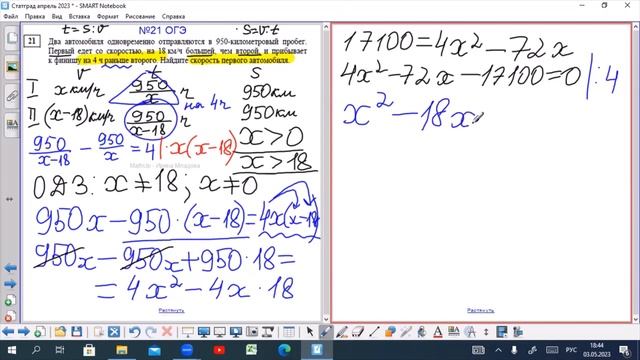 Статград апрель 2023 * - SMART Notebook
t = S:v №21 ОГЭ S=v·t
21 Два автомобиля одновременно отправляются в 950-километровый пробег.
Первый едет со скоростью, на 18 км/ч большей, чем второй, и прибывает
к финишу на 4 ч раньше второго. Найдите скорость первого автомобиля.
v t S
I x км/ч 950/x ч 950 км
на 4ч
II (x-18) км/ч 950/(x-18) ч 950 км
950/(x-18) - 950/x = 4 | · x(x-18)
x>0
x>18
ОДЗ: x≠18; x≠0
950x - 950·(x-18) = 4x(x-18)
950x - 950x + 950·18 =
= 4x² - 4x·18
Растянуть
17100 = 4x² - 72x
4x² - 72x - 17100 = 0 |:4
x² - 18x
Растянуть
РУС
18:44
03.05.2023